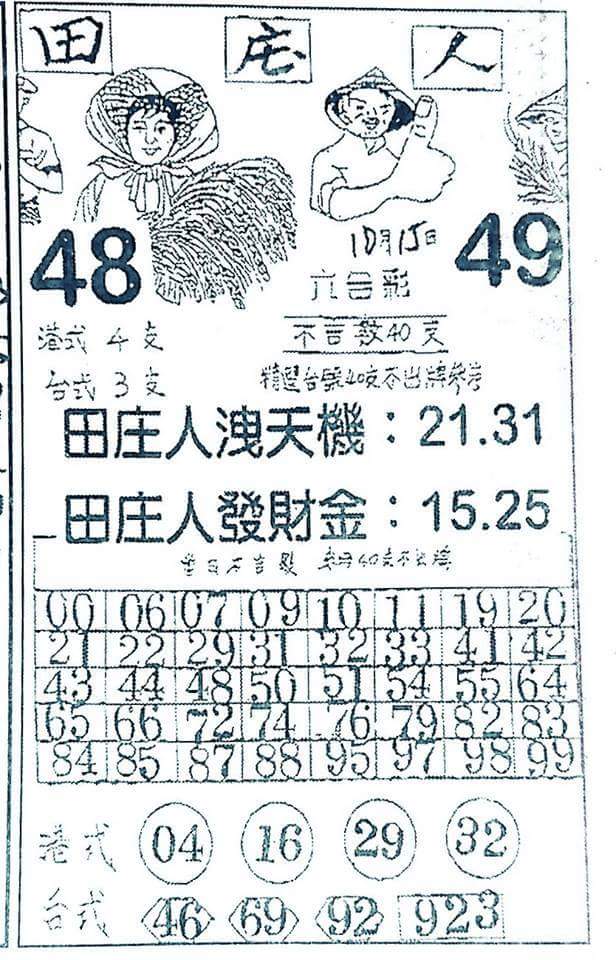 田 庄 人
48
49
10月15日
六合彩
港式 4支
不言數40支
台式 3支
精選台號40支不出牌參考
田庄人洩天機：21.31
田庄人發財金：15.25
40支不出牌
00 06 07 09 10 11 19 20
21 22 29 31 32 33 41 42
43 44 48 50 51 54 55 64
65 66 72 74 76 79 82 83
84 85 87 88 95 97 98 99
港式 04 16 29 32
台式 46 69 92 923